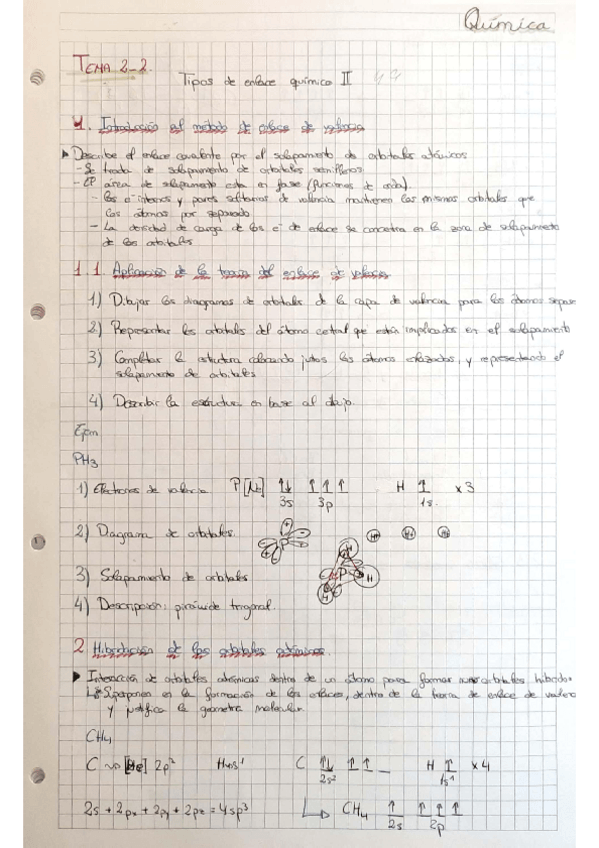 Química
TEMA 2-2.
Tipos de enlace químico II
1. Introducción al método de enlace de valencia
▸ Describe el enlace covalente por el solapamiento de orbitales atómicos
- Se trata de solapamiento de orbitales semillenos.
- El área de solapamiento esta en fase (funciones de onda).
- Los e⁻ internos y pares solitarios de valencia mantienen los mismos orbitales que
los átomos por separado
- La densidad de carga de los e⁻ de enlace se concentra en la zona de solapamiento
de los orbitales
1.1. Aplicación de la teoría del enlace de valencia
1) Dibujar los diagramas de orbitales de la capa de valencia para los átomos separ
2) Representar los orbitales del átomo central que están implicados en el solapamiento
3) Completar la estructura colocando jutos los átomos enlazados, y representando el
solapamiento de orbitales
4) Describir la estructura en base al dibujo.
Ejem
PH3
1) Electrones de valencia P [Ne] ↑↓ ↑ ↑ ↑ H ↑ x3
3s 3p 1s
2) Diagrama de orbitales.
3) Solapamiento de orbitales
4) Descripción: pirámide trigonal.
2 Hibridación de los orbitales atómicos.
▸ Interacción de orbitales atómicos dentro de un átomo para formar orbitales híbridos
Superponen en la formación de los enlaces, dentro de la teoría de enlace de valenc
y justifica la geometría molecular
CH4
C [He] 2p² H 1s¹ C ↑↓ ↑ ↑ _ H ↑ x4
2s² 1s¹
2s + 2px + 2py + 2pz = 4sp³ CH4 ↑ ↑ ↑ ↑
2s 2p